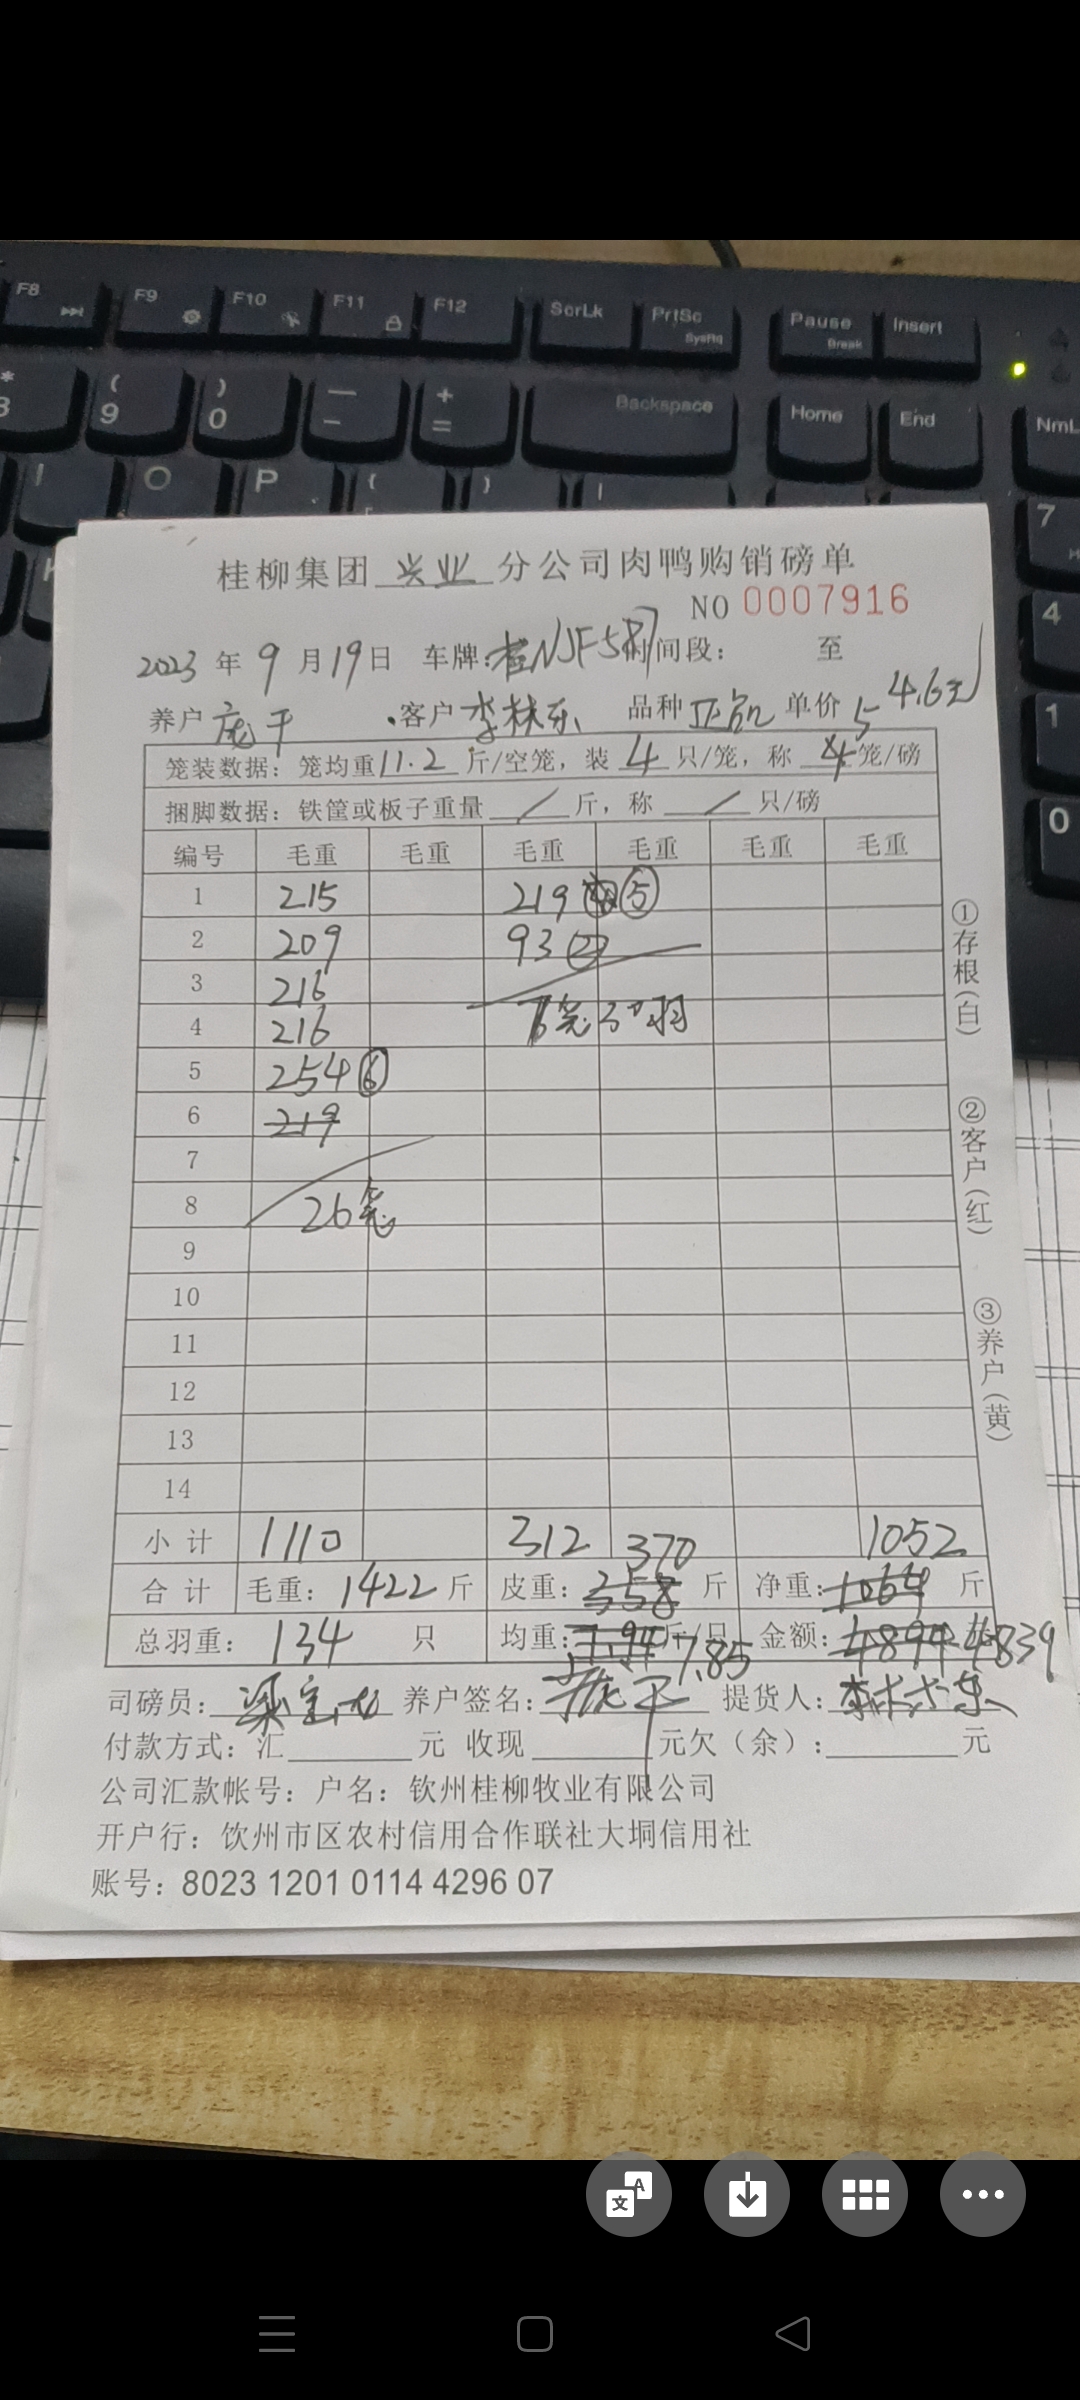 F8 F9 F10 F11 F12 ScrLk PrtSc SysRq Pause Break Insert
* 8 ( 9 ) 0 — - + = Backspace Home End NmL
I O P { [ } | 7
4
1
0
桂柳集团 兴业 分公司肉鸭购销磅单
NO 0007916
2023 年 9 月 19 日 车牌: 桂NJF587 时间段: 至
养户 庞干 客户 李林东 品种 正品 单价 4.6元
笼装数据: 笼均重 11.2 斤/空笼, 装 4 只/笼, 称 5 笼/磅
捆脚数据: 铁筐或板子重量 / 斤, 称 / 只/磅
编号 毛重 毛重 毛重 毛重 毛重 毛重
1 215 219 ⑤
2 209 93 ②
3 216
4 216 羽
5 254 ⑥
6 219
7
8 26笼
9
10
11
12
13
14
小计 1110 312 370 1052
合计 毛重: 1422 斤 皮重: 358 斤 净重: 1064 斤
总羽重: 134 只 均重: 7.94 斤/只 7.85 金额: 4894 4839
司磅员: 养户签名: 庞干 提货人: 李林东
付款方式: 汇 元 收现 元欠（余）: 元
公司汇款帐号: 户名: 钦州桂柳牧业有限公司
开户行: 饮州市区农村信用合作联社大垌信用社
账号: 8023 1201 0114 4296 07
①存根(白)
②客户(红)
③养户(黄)